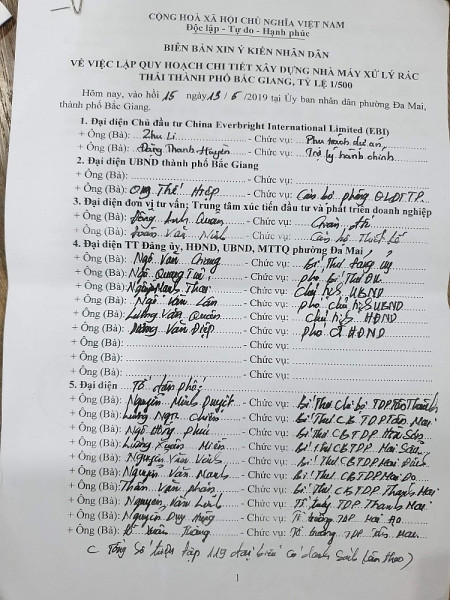 CỘNG HOÀ XÃ HỘI CHỦ NGHĨA VIỆT NAM
Độc lập - Tự do - Hạnh phúc
BIÊN BẢN XIN Ý KIẾN NHÂN DÂN
VỀ VIỆC LẬP QUY HOẠCH CHI TIẾT XÂY DỰNG NHÀ MÁY XỬ LÝ RÁC
THẢI THÀNH PHỐ BẮC GIANG, TỶ LỆ 1/500
Hôm nay, vào hồi 15 ngày 13/6/2019 tại Ủy ban nhân dân phường Đa Mai,
thành phố Bắc Giang.
1. Đại diện Chủ đầu tư China Everbright International Limited (EBI)
+ Ông (Bà): Zhu Li - Chức vụ: Phụ trách dự án
+ Ông (Bà): Đặng Thanh Huyền - Chức vụ: Trợ lý hành chính
2. Đại diện UBND thành phố Bắc Giang
+ Ông (Bà): - Chức vụ:
+ Ông (Bà): Thế Hiệp - Chức vụ: Cán bộ phòng QLĐTTP
3. Đại diện đơn vị tư vấn; Trung tâm xúc tiến đầu tư và phát triển doanh nghiệp
+ Ông (Bà): Anh Quân - Chức vụ:
+ Ông (Bà): Văn Ninh - Chức vụ: Cán bộ Thiết kế
4. Đại diện TT Đảng ủy, HĐND, UBND, MTTQ phường Đa Mai
+ Ông (Bà): Ngô Văn - Chức vụ: Bí Thư Đảng ủy
+ Ông (Bà): Ngô Quang - Chức vụ: Phó Bí Thư ĐU
+ Ông (Bà): Thái - Chức vụ: Chủ tịch UBND
+ Ông (Bà): Ngô Văn - Chức vụ: phó Chủ tịch UBND
+ Ông (Bà): Lương Văn Quân - Chức vụ: Chủ tịch HĐND
+ Ông (Bà): Dương Văn Điệp - Chức vụ: phó CT HĐND
+ Ông (Bà): - Chức vụ:
+ Ông (Bà): - Chức vụ:
5. Đại diện Tổ dân phố:
+ Ông (Bà): Nguyễn Minh Duyệt - Chức vụ: Bí Thư Chi bộ TDP Tân Thành
+ Ông (Bà): Lương Ngọc Chiến - Chức vụ: Bí Thư CB TDP Tân Mai
+ Ông (Bà): Ngô Hồng Phúc - Chức vụ: Bí Thư CB TDP
+ Ông (Bà): Lương Xuân Miên - Chức vụ: Bí Thư CB TDP Mai Sẫu
+ Ông (Bà): Nguyễn Văn - Chức vụ: Bí Thư CB TDP Mai
+ Ông (Bà): Nguyễn Văn Mạnh - Chức vụ: Bí Thư CB TDP Mai Đọ
+ Ông (Bà): Thân Văn - Chức vụ: Bí Thư CB TDP Thanh Mai
+ Ông (Bà): Nguyễn Văn - Chức vụ: TDP Thanh Mai
+ Ông (Bà): Nguyễn Duy - Chức vụ: Tổ trưởng TDP Mai Đọ
+ Ông (Bà): Xuân - Chức vụ: Tổ trưởng TDP Mai
( Tổng số 119 đại biểu có danh sách kèm theo)
1